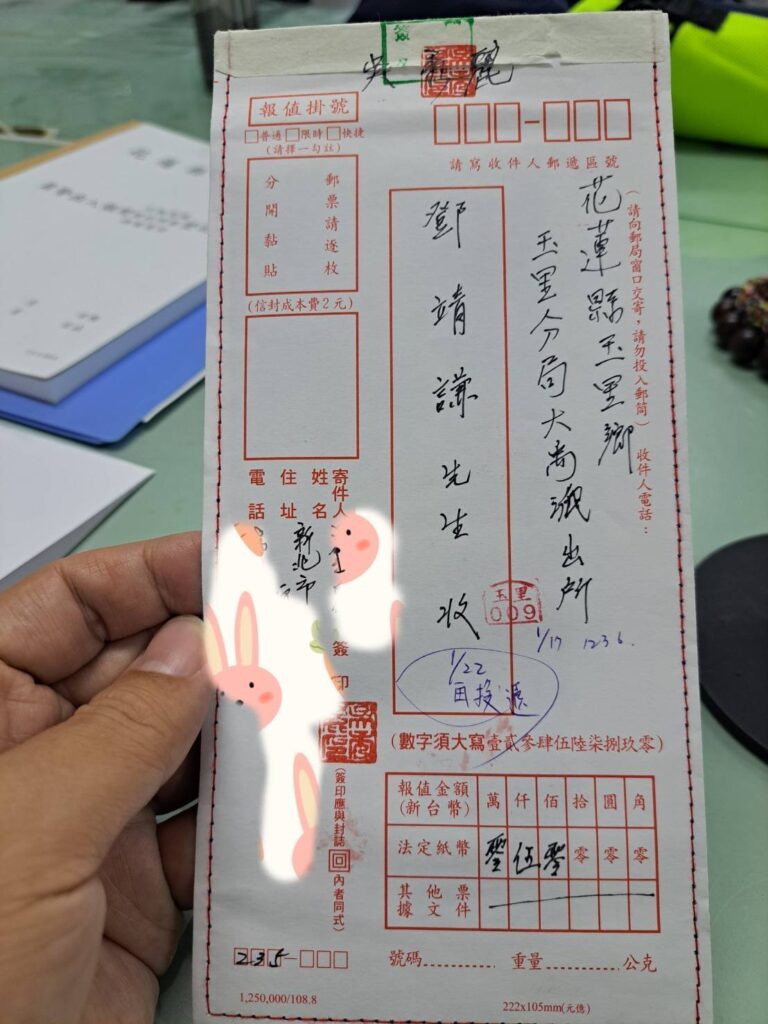 簽
吳 麗
報值掛號
□普通□限時□快捷
(請擇一勾註)
郵票請逐枚
分開黏貼
(信封成本費2元)
請寫收件人郵遞區號
(請向郵局窗口交寄,請勿投入郵筒) 收件人電話:
花蓮縣玉里鄉
玉里分局大禹派出所
鄧靖謙先生 收
玉里
009
1/17 1236
1/22
寄件人
姓名
住址
新北市
電話
簽印
(簽印應與封誌回內者同式)
(數字須大寫壹貳參肆伍陸柒捌玖零)
報值金額(新台幣) 萬 仟 佰 拾 圓 角
法定紙幣 零 伍 零 零 零 零
其他票據文件
235-□□□
號碼 重量 公克
1,250,000/108.8
222x105mm(元億)